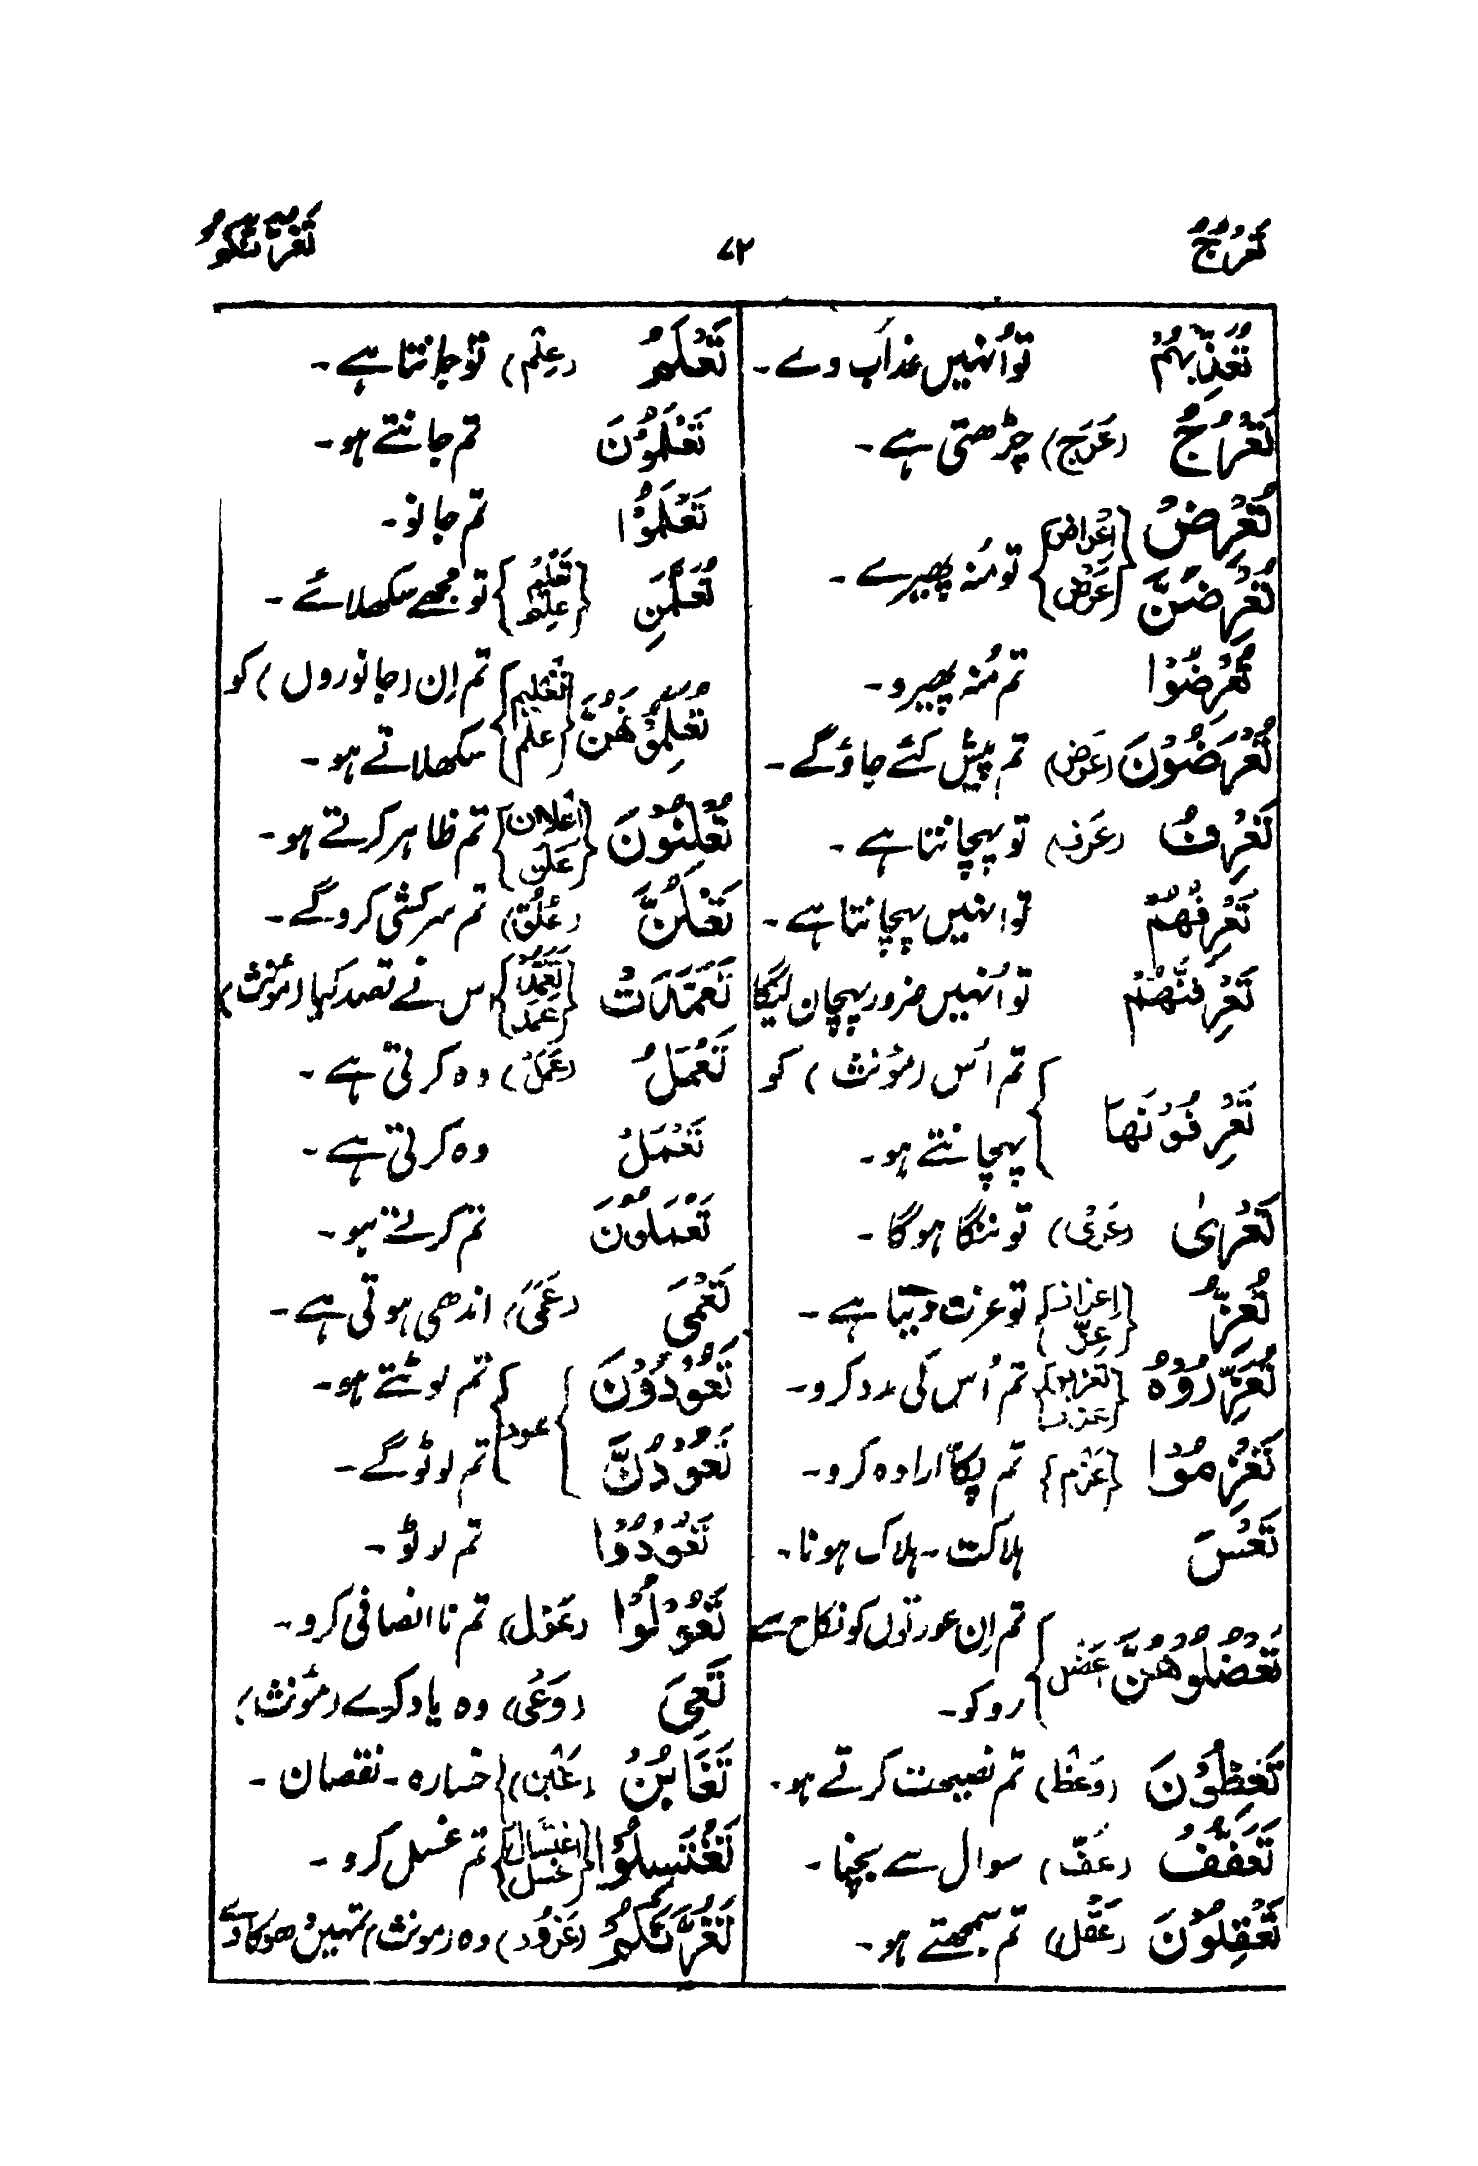 تَعْرُجُ ۷۲ تَغُرَّنَّكُمُ
تُعَذِّبْهُمْ تو اُنہیں عذاب دے۔
تَعْرُجُ (عَرَج) چڑھتی ہے۔
تُعْرِضُ
تُعْرِضَنَّ {اِعْراض عَرْض} تو مُنہ پھیرے۔
تُعْرِضُوْا تم مُنہ پھیرو۔
تُعْرَضُوْنَ (عَرض) تم پیش کئے جاؤ گے۔
تَعْرِفُ (عَرَف) تو پہچانتا ہے۔
تَعْرِفُهُمْ تو انہیں پہچانتا ہے۔
تَعْرِفَنَّهُمْ تو اُنہیں ضرور پہچان لیگا
تَعْرِفُوْنَهَا } تم اُس (مؤنث) کو
پہچانتے ہو۔
تَعْرٰى (عَرْیٌ) تو ننگا ہوگا۔
تُعِزُّ {اِعزاز عِزّ} تو عزت دیتا ہے۔
تُعَزِّرُوْهُ {تعزیر عزر} تم اُس کی مدد کرو۔
تَعْزِمُوْا {عَزم} تم پکّا ارادہ کرو۔
تَعْسَ ہلاکت۔ ہلاک ہونا۔
تَعْضُلُوْهُنَّ عَضل } تم اِن عورتوں کو نکاح سے
روکو۔
تَعِظُوْنَ (وَعظ) تم نصیحت کرتے ہو۔
تَعَفُّفُ (عَفّ) سوال سے بچنا۔
تَعْقِلُوْنَ (عَقْل) تم سمجھتے ہو۔
تَعْلَمُ (عِلْم) تو جانتا ہے۔
تَعْلَمُوْنَ تم جانتے ہو۔
تَعْلَمُوْا تم جانو۔
تُعَلِّمَنِ {تَعْلِیم عِلْم} تو مجھے سکھلائے۔
تُعَلِّمُوْنَهُنَّ {تَعْلِیم عِلْم} تم اِن (جانوروں) کو
سکھلاتے ہو۔
تُعْلِنُوْنَ {اعلان عَلن} تم ظاہر کرتے ہو۔
تَعْلُنَّ (عُلُوّ) تم سرکشی کرو گے۔
تَعَمَّدَتْ {تَعَمُّد عَمَد} اس نے قصد کیا (مؤنث)
تَعْمَلُ (عَمَل) وہ کرتی ہے۔
تَعْمَلْ وہ کرتی ہے۔
تَعْمَلُوْنَ تم کرتے ہو۔
تَعْمَى (عَمًی) اندھی ہوتی ہے۔
تَعُوْدُوْنَ } عود { تم لوٹتے ہو۔
تَعُوْدُنَّ تم لوٹو گے۔
تَعُوْدُوْا تم لوٹو۔
تَعُوْلُوْا (عَوْل) تم نا انصافی کرو۔
تَعِيَ (وَعْی) وہ یاد کرے (مؤنث)
تَغَابُنُ (غَبْن) خسارہ۔ نقصان۔
تَغْتَسِلُوْا {اغتسال غسل} تم غسل کرو۔
تَغُرَّنَّكُمُ (غرُور) وہ (مونث) تمہیں دھوکا دے